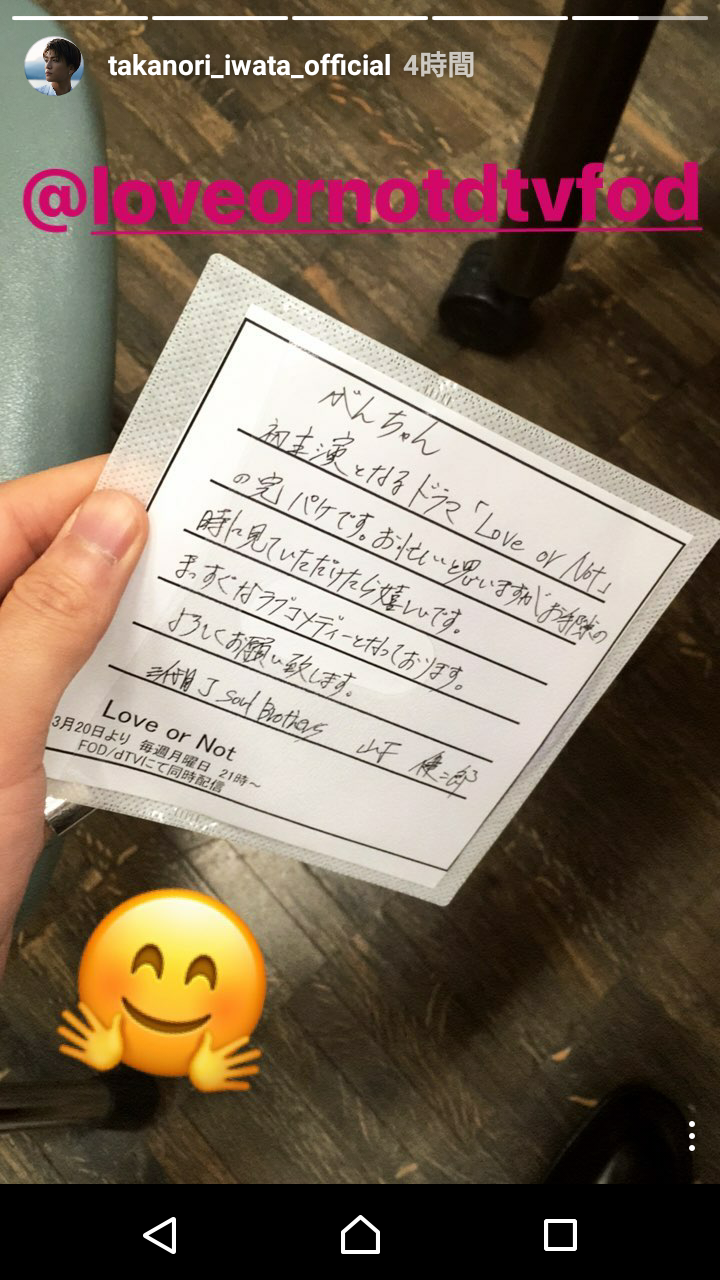 takanori_iwata_official 4時間
@loveornotdtvfod
がんちゃん
初主演となるドラマ「Love or Not」
の完パケです。お忙しいと思いますがお手隙の
時に見ていただけたら嬉しいです。
まっすぐなラブコメディーとなっております。
よろしくお願い致します。
三代目 J Soul Brothers 山下 健二郎
Love or Not
3月20日より 毎週月曜日 21時～
FOD/dTVにて同時配信